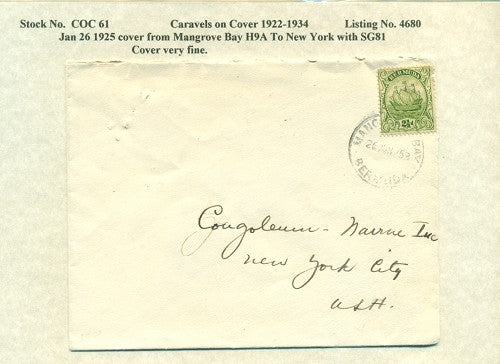 Stock No. COC 61 Caravels on Cover 1922-1934 Listing No. 4680
Jan 26 1925 cover from Mangrove Bay H9A To New York with SG81
Cover very fine.
BERMUDA
2½d
BAY
BERMUDA
Congoleum - Nairne Inc
New York City
USA.